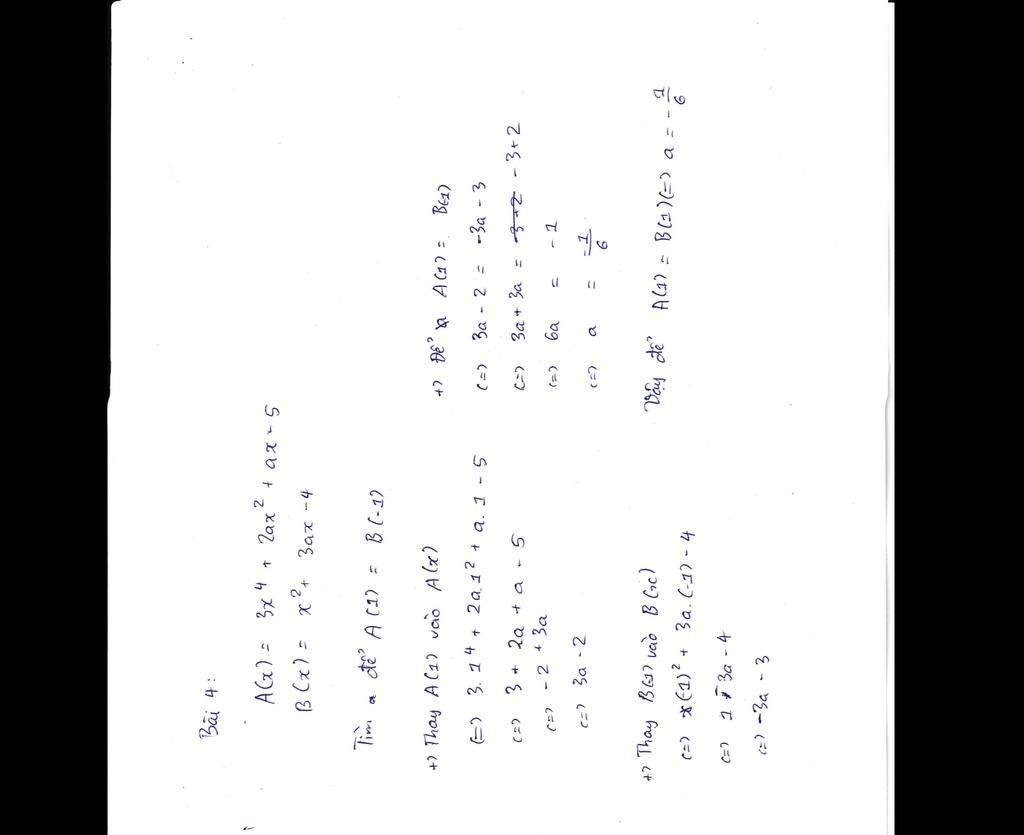 Bài 4:
A(x) = 3x⁴ + 2ax² + ax - 5
B(x) = x² + 3ax - 4
Tìm a để A(1) = B(-1)
+) Thay A(1) vào A(x)
(=) 3.1⁴ + 2a.1² + a.1 - 5
(=) 3 + 2a + a - 5
(=) -2 + 3a
(=) 3a - 2
+) Thay B(-1) vào B(x)
(=) (-1)² + 3a.(-1) - 4
(=) 1 - 3a - 4
(=) -3a - 3
+) Để A(1) = B(-1)
(=) 3a - 2 = -3a - 3
(=) 3a + 3a = -3+2 - 3+2
(=) 6a = -1
(=) a = -1/6
Vậy để A(1) = B(1) (=) a = -1/6